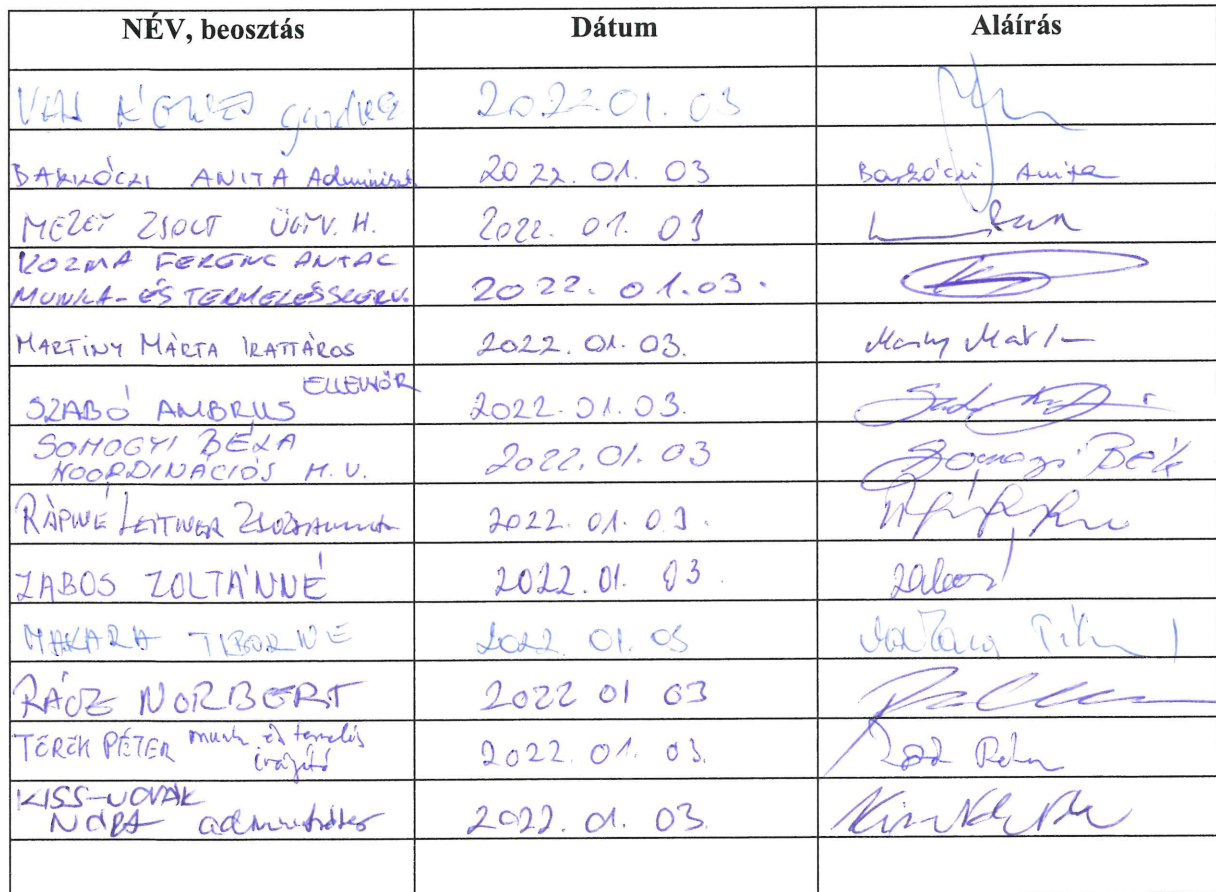 NÉV, beosztás Dátum Aláírás
2022.01.03
BARKÓCZI ANITA Administ 2022. 01. 03 Barkóczi Anita
MEZEY ZSOLT ÜGYV. H. 2022. 01. 03
KOZMA FERENC ANTAL
MUNKA- ÉS TERMELÉSSZERV. 2022. 01.03.
MARTINY MÁRTA IRATTÁROS 2022. 01. 03.
ELLENŐR
SZABÓ AMBRUS 2022. 01. 03.
SOMOGYI BÉLA
KOORDINÁCIÓS M. V. 2022. 01. 03 Somogyi Béla
RÁPINÉ LEITNER ZSUZSANNA 2022. 01. 03.
ZABOS ZOLTÁNNÉ 2022. 01. 03.
MAKARA TIBORNÉ 2022. 01. 03
RÁCZ NORBERT 2022 01 03
TEREK PÉTER munka és termelés
irányító 2022. 01. 03.
KISS-NOVÁK
NÓRA adminisztrátor 2022. 01. 03.